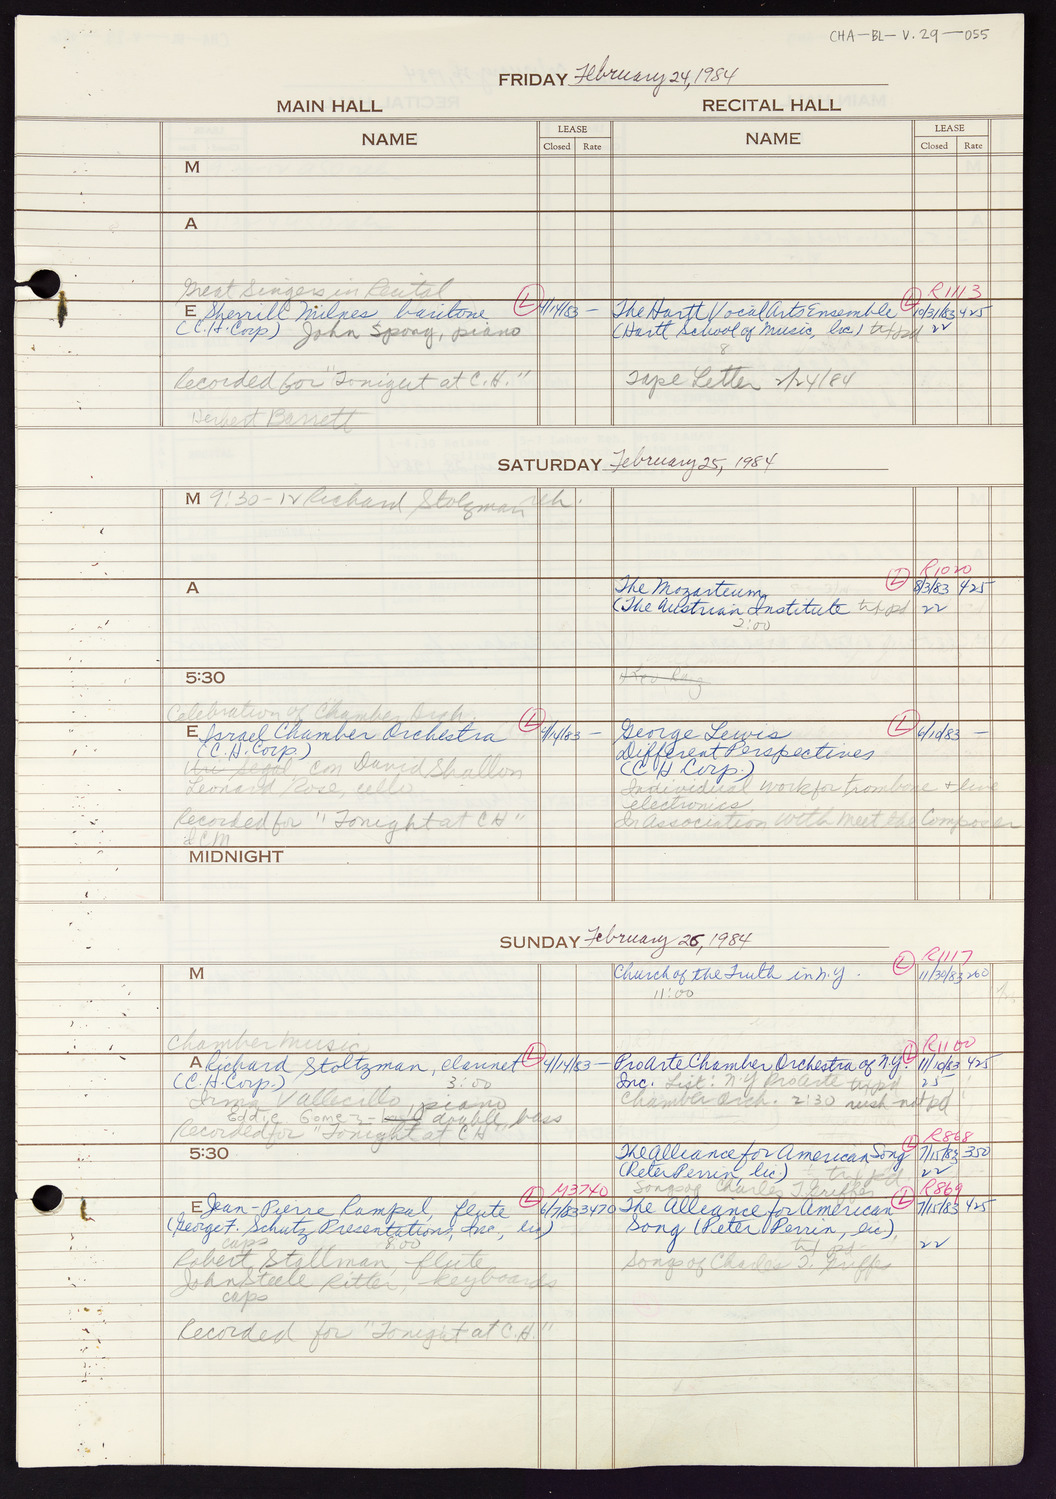 CHA-BL-V.29-055
FRIDAY February 24, 1984
MAIN HALL
RECITAL HALL
NAME
LEASE
Closed Rate
NAME
LEASE
Closed Rate
M
A
Great Singers in Recital
E Sherrill Milnes, baritone L 4/14/83 -
(C.H. Corp) John Spong, piano
Recorded for "Tonight at C.H."
Herbert Barrett
L R1113
The Hartt Vocal Arts Ensemble 10/31/83 425
(Hartt School of Music, lic) txt pd 22
8
Tape Letter 2/24/84
SATURDAY February 25, 1984
M 9:30-12 Richard Stolzman reh.
A
L R1020
The Mozarteum 8/3/83 425
(The Austrian Institute txt pd 22
2:00
5:30
Celebration of Chamber Orch.
E Israel Chamber Orchestra L 4/14/83 -
(C.H. Corp.)
Uri Segal con David Shallon
Leonard Rose, cello
Recorded for "Tonight at CH"
ICM
George Lewis L 6/10/83 -
Different Perspectives
(C H Corp.)
Individual work for trombone + live
electronics
In association with Meet the Composer
MIDNIGHT
SUNDAY February 26, 1984
M
L R1117
Church of the Truth in N.Y. 11/30/83 260
11:00
Chamber Music
A Richard Stoltzman, clarinet L 4/14/83 -
(C.H. Corp.) 3:00
Irma Vallecillo, piano
Eddie Gomez - double bass
Recorded for "Tonight at CH"
L R1100
Pro Arte Chamber Orchestra of N.Y. 11/10/83 425
Inc. List: N.Y Pro Arte txt pd 25
Chamber Orch. 2:30 rush not pd
5:30
L R868
The Alliance for American Song 7/15/83 350
(Peter Perrin, lic) txt pd 22
Songs of Charles T. Griffes
L M3740
E Jean-Pierre Rampal, flute 6/7/83 3470
(George F. Schutz Presentations, Inc, lic)
caps 8:00
Robert Stallman, flute
John Steele Ritter, keyboards
caps
Recorded for "Tonight at C.H."
L R869
The Alliance for American 7/15/83 425
Song (Peter Perrin, lic).
txt pd 22
Songs of Charles T. Griffes